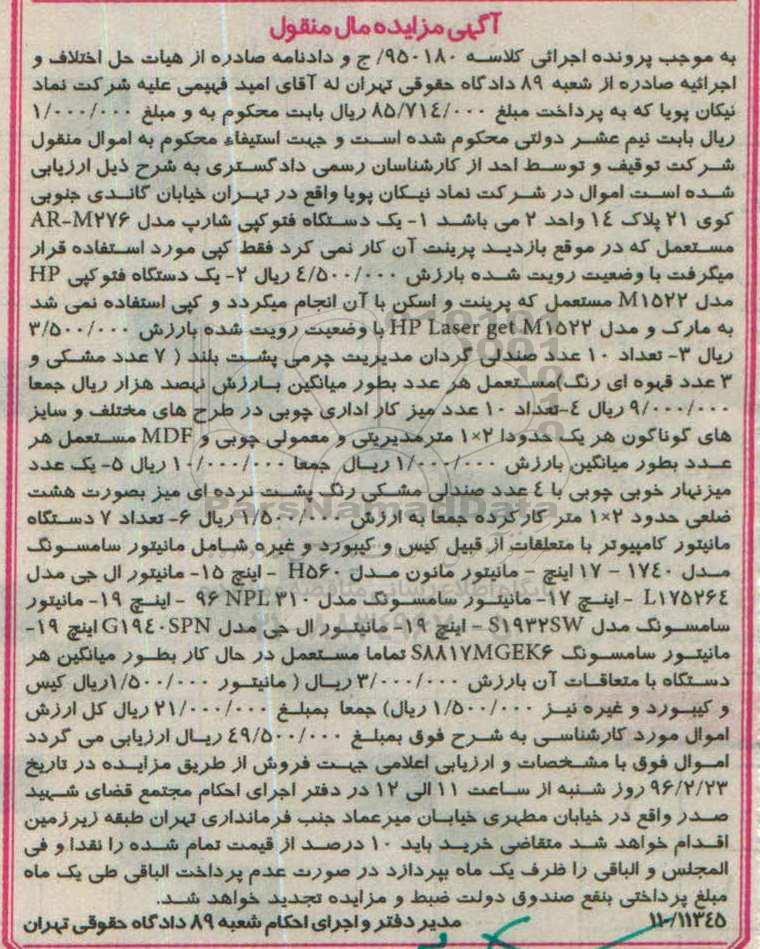 آگهی مزایده مال منقول
به موجب پرونده اجرائی کلاسه ۹۵۰۱۸۰/ ج و دادنامه صادره از هیات حل اختلاف و
اجرائیه صادره از شعبه ۸۹ دادگاه حقوقی تهران له آقای امید فهیمی علیه شرکت نماد
نیکان پویا که به پرداخت مبلغ ۸۵/۷۱٤/۰۰۰ ریال بابت محکوم به و مبلغ ۱/۰۰۰/۰۰۰
ریال بابت نیم عشر دولتی محکوم شده است و جهت استیفاء محکوم به اموال منقول
شرکت توقیف و توسط احد از کارشناسان رسمی دادگستری به شرح ذیل ارزیابی
شده است اموال در شرکت نماد نیکان پویا واقع در تهران خیابان گاندی جنوبی
کوی ۲۱ پلاک ۱٤ واحد ۲ می باشد ۱- یک دستگاه فتوکپی شارپ مدل AR-M۲۷۶
مستعمل که در موقع بازدید پرینت آن کار نمی کرد فقط کپی مورد استفاده قرار
میگرفت با وضعیت رویت شده بارزش ٤/۵۰۰/۰۰۰ ریال ۲- یک دستگاه فتوکپی HP
مدل M۱۵۲۲ مستعمل که پرینت و اسکن با آن انجام میگردد و کپی استفاده نمی شد
به مارک و مدل HP Laser get M۱۵۲۲ با وضعیت رویت شده بارزش ۳/۵۰۰/۰۰۰
ریال ۳- تعداد ۱۰ عدد صندلی گردان مدیریت چرمی پشت بلند ( ۷ عدد مشکی و
۳ عدد قهوه ای رنگ)مستعمل هر عدد بطور میانگین بارزش نهصد هزار ریال جمعا
۹/۰۰۰/۰۰۰ ریال ٤-تعداد ۱۰ عدد میز کار اداری چوبی در طرح های مختلف و سایز
های گوناگون هر یک حدودا ۲×۱ متر مدیریتی و معمولی چوبی و MDF مستعمل هر
عدد بطور میانگین بارزش ۱/۰۰۰/۰۰۰ ریال جمعا ۱۰/۰۰۰/۰۰۰ ریال ۵- یک عدد
میزنهار خوبی چوبی با ٤ عدد صندلی مشکی رنگ پشت نرده ای میز بصورت هشت
ضلعی حدود ۲×۱ متر کارکرده جمعا به ارزش ۱/۵۰۰/۰۰۰ ریال ۶- تعداد ۷ دستگاه
مانیتور کامپیوتر با متعلقات از قبیل کیس و کیبورد و غیره شامل مانیتور سامسونگ
مدل ۱۷٤۰ - ۱۷ اینچ - مانیتور مانون مدل H۵۶۰ - اینچ ۱۵- مانیتور ال جی مدل
L۱۷۵۲۶٤ - اینچ ۱۷- مانیتور سامسونگ مدل ۹۶ NPL ۳۱۰ - اینچ ۱۹- مانیتور
سامسونگ مدل S۱۹۳۲SW - اینچ ۱۹- مانیتور ال جی مدل G۱۹٤۰SPN اینچ ۱۹-
مانیتور سامسونگ S۸۸۱۷MGEK۶ تماما مستعمل در حال کار بطور میانگین هر
دستگاه با متعاقات آن بارزش ۳/۰۰۰/۰۰۰ ریال ( مانیتور ۱/۵۰۰/۰۰۰ریال کیس
و کیبورد و غیره نیز ۱/۵۰۰/۰۰۰ ریال) جمعا بمبلغ ۲۱/۰۰۰/۰۰۰ ریال کل ارزش
اموال مورد کارشناسی به شرح فوق بمبلغ ٤۹/۵۰۰/۰۰۰ ریال ارزیابی می گردد
اموال فوق با مشخصات و ارزیابی اعلامی جهت فروش از طریق مزایده در تاریخ
۹۶/۲/۲۳ روز شنبه از ساعت ۱۱ الی ۱۲ در دفتر اجرای احکام مجتمع قضای شهید
صدر واقع در خیابان مطهری خیابان میرعماد جنب فرمانداری تهران طبقه زیرزمین
اقدام خواهد شد متقاضی خرید باید ۱۰ درصد از قیمت تمام شده را نقدا و فی
المجلس و الباقی را ظرف یک ماه بپردازد در صورت عدم پرداخت الباقی طی یک ماه
مبلغ پرداختی بنفع صندوق دولت ضبط و مزایده تجدید خواهد شد.
۱۱۰/۱۱۳٤۵ مدیر دفتر و اجرای احکام شعبه ۸۹ دادگاه حقوقی تهران
ParsNamadData